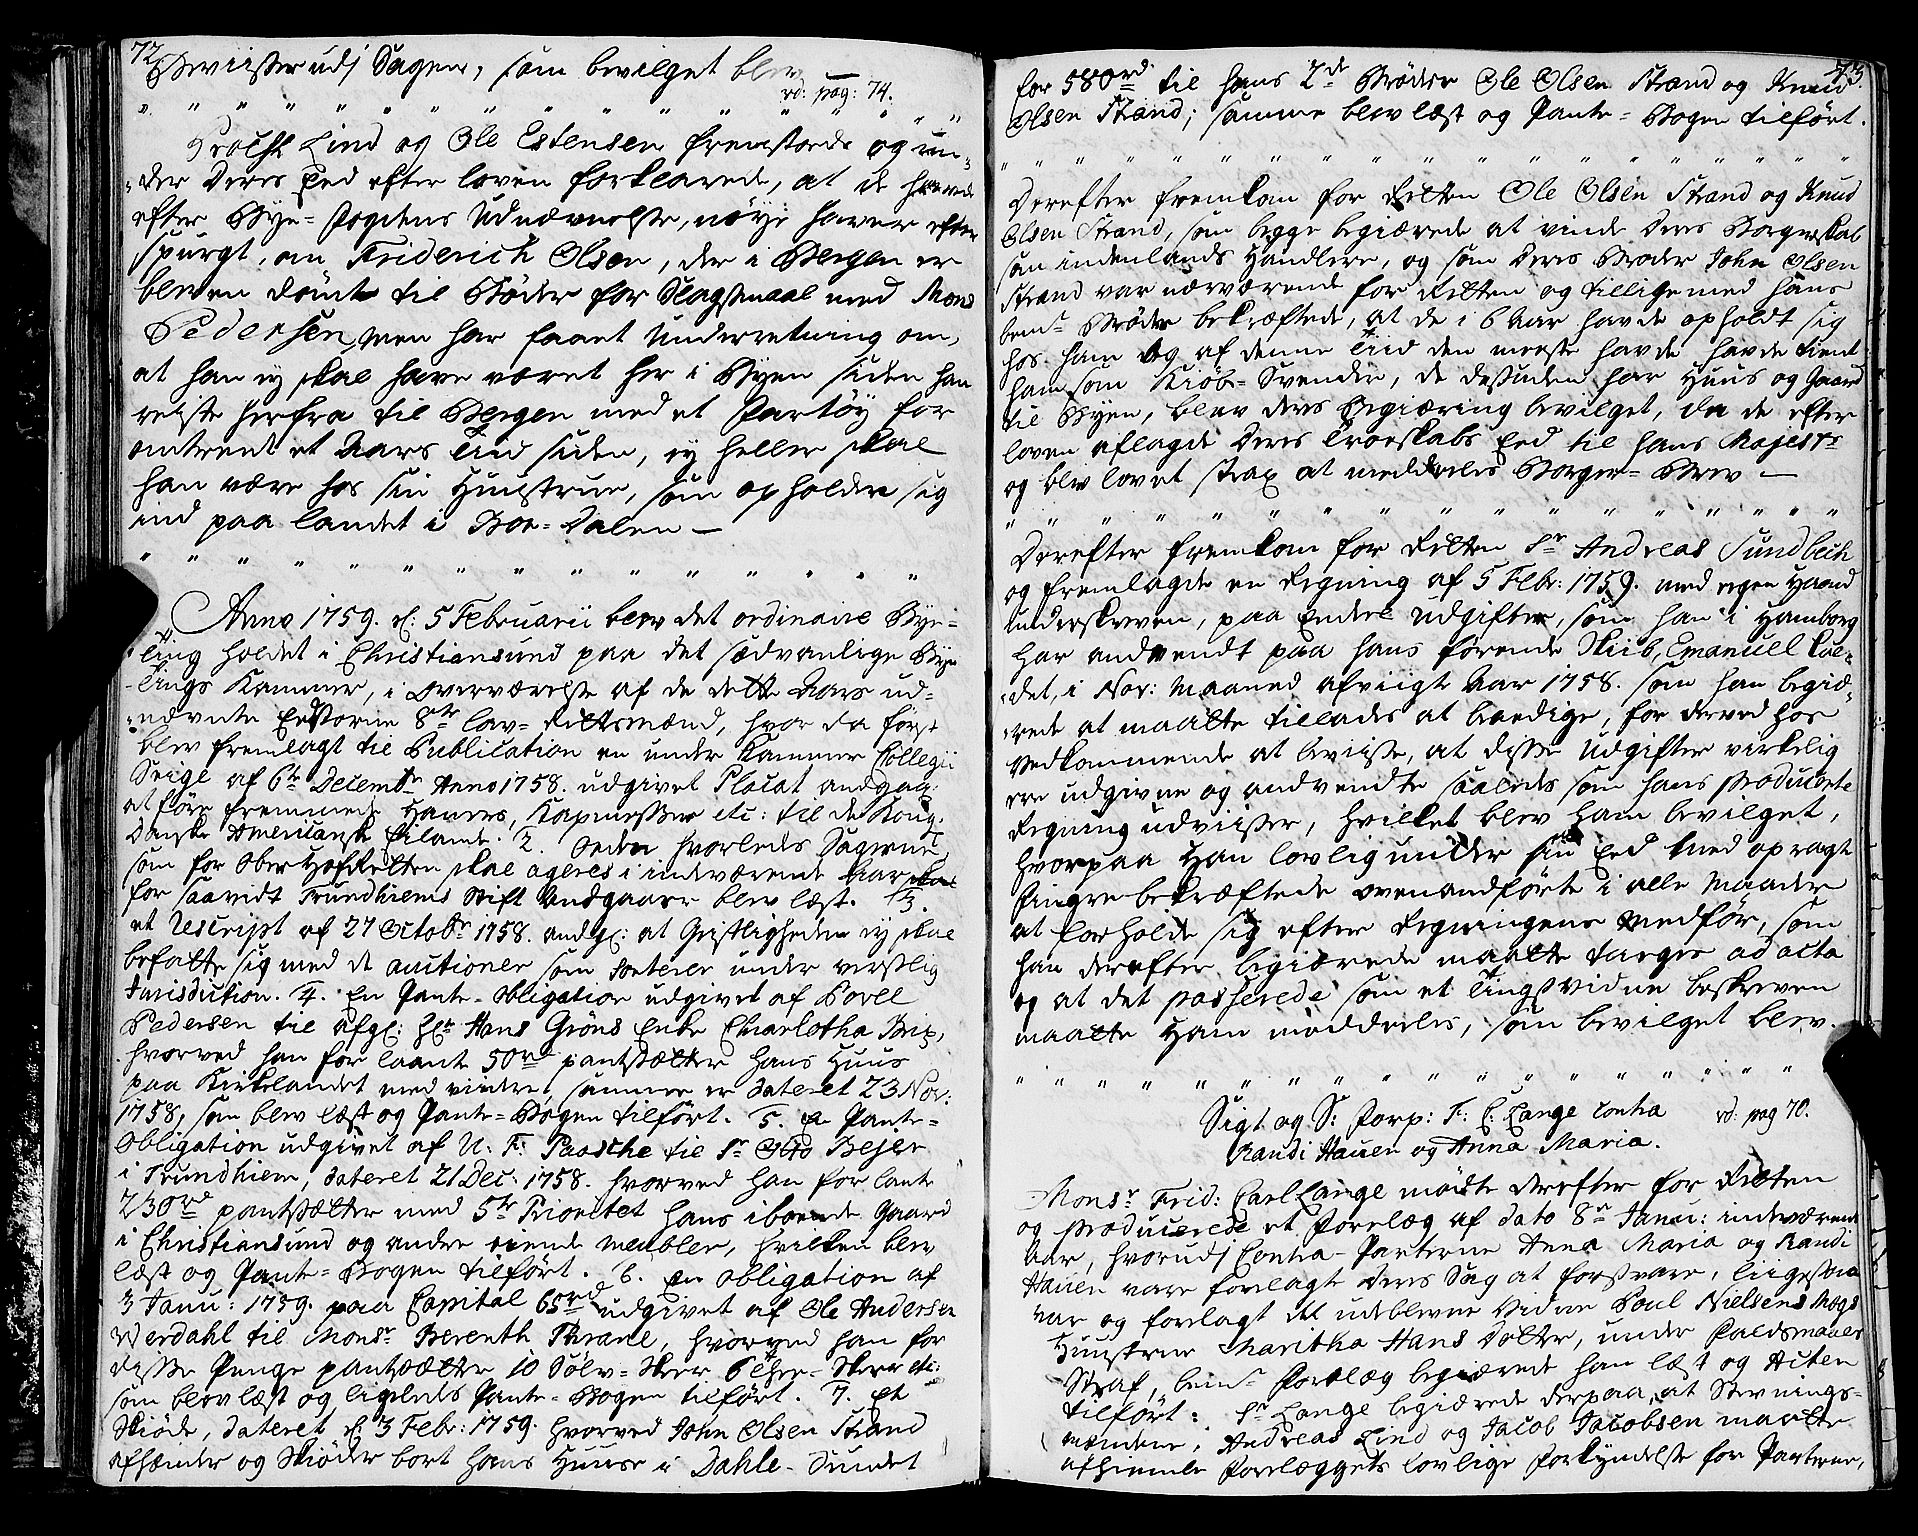 72
Beviiser udj Sagen, som bevilget blev
vd: pag: 74.
Troels Lind og Ole Estensen fremstoede og un-
der Deres Eed efter loven forklarede, at de havde
efter Bye-Fogdens Udnævnelse, nøye haver efter
spurgt, om Friderich Olsen, der i Bergen er
bleven dømt til Bøder for Slagsmaal med Mons
Pedersen, men har faaet Underretning om,
at han ey skal have været her i Byen siden han
reiste herfra til Bergen med et Fartøy for
omtrent et Aars Tiid siden, ey heller skal
han være hos sin Hustrue, som opholder sig
ind paa landet i -Dalen —
Anno 1759. d: 5 Februarii blev det ordinaire Bye-
Ting holdet i Christiansund paa det sædvanlige Bye
Tings Kammer, i Overværelse af de dette Aars ud-
nævnte Eedsvorne 8te lav-Rettsmænd, hvor da først
blev fremlagt til Publication en under Kammer Collegii
Seigl af 6te Decembr Anno 1758. udgivet Placat andgaa:
at føre fremmede Havers, Kapmesser etc: til de Kong:
Danske Americanske Eilande. 2. Seden hvorleds Sagerne,
som for Ober Hofretten skal ageres i indeværende Aar
for saavidt Trundhiems Stift Andgaaer blev læst. 3.
et Rescript af 27 Octobr 1758. andg: at Geistligheden ey skal
befatte sig med de auctioner som sorterer under verslig
Jurisdiction. 4. En Pante-Obligation udgivet af Povel
Pedersen til afg: Hr Hans Grøns Enke Charlotha Brix,
hvorved han for laant 50rd pantsætter hans Huus
paa Kirkelandet med videre, samme er dateret 23 Nov:
1758, som blev læst og Pante-Bogen tilført. 5. En Pante-
Obligation udgivet af N: F: Paasche til Sr Otto Bejer
i Trundhiem, dateret 21 Dec: 1758. hvorved han for laante
230rd pantsætter med 5te Prioritet hans iboende Gaard
i Christiansund og andre eiende meubler, hvilken blev
læst og Pante-Bogen tilført. 6. En Obligation af
3 Janu: 1759. paa Capital 65rd udgivet af Ole Andersen
Werdahl til Monsr Berenth Thrane, hvorved han for
disse Penge pantsætter 10 Sølv-Skeer 6 Thee-Skeer etc:
som blev læst og ligeleds Pante-Bogen tilført. 7. Et
Skiøde, dateret d: 3 Febr: 1759. hvorved John Olsen Strand
afhænder og Skiøder bort hans Huuse i Dahle-Sundet
73
for 580rd til hans 2de Brødre Ole Olsen Strand og Knud
Olsen Strand; samme blev læst og Pante-Bogen tilført.
Derefter fremkom for Retten Ole Olsen Strand og Knud
Olsen Strand, som begge begiærede at vinde Deres Borgerskab
som indenlands Handlere, og som Deres Broder John Olsen
Strand var nærværende for Retten og tillige med hans
bemte Brødre bekræftede, at de i 6 Aar havde opholdt sig
hos ham og af denne Tiid den meeste havde havde tient
ham som Kiøb-Svender, de dessuden har Huus og Gaard
til Byen, blev deres Begiæring bevilget, da de efter
loven aflagde Deres Troeskabs Eed til hans Majestt
og blev lovet strax at meddeeles Borger-Brev —
Derefter fremkom for Retten Sr Andreas Sundbech
og fremlagde en Regning af 5 Febr: 1759. med egen Haand
underskreven, paa Endeel Udgifter, som han i Hamborg
har andvendt paa hans førende Skib, Emanuell kal-
det, i Nov: Maaned afviigte Aar 1758. som han begiæ-
rede at maatte tillades at beedige, for derved hos
Vedkommende at beviise, at disse Udgifter virkelig
ere udgivne og andvendte saaleds som hans producerte
Regning udviiser, hvilket blev ham bevilget,
hvorpaa Han lovlig under sin Eed med opragt
Fingre bekræftede ovenandførte i alle Maader
at forholde sig efter Regningens Medfør, som
han derefter begiærede maatte tages ad acta
og at det passerede som et Tingsvidne beskreven
maatte Ham meddeeles, som bevilget blev.
Sigt og S: Porp: F: C: Lange contra
vd: pag 70.
Randi Hauen og Anna Maria.
Monsr Frid: Carl Lange mødte derefter for Retten
og producerede et Forelæg af dato 8de Janu: indeværende
Aar, hvorudj Contra-Parterne Anna Maria og Randi
Hauen vare forelagt deres Sag at forsvare, liigesom
var og forelagt det udeblevne Vidne Poul Nielsens Mægs
Hustrue Maritha Hans Dotter, under Faldsmaals
Straf, bemte Forelæg begiærede han læst og Acten
tilført: Sr Lange begiærede derpaa, at Stevnings-
mændene, Andreas Lind og Jacob Jacobsen maatte
afhiemle Forelæggets lovlige Forkyndelse for Parterne,